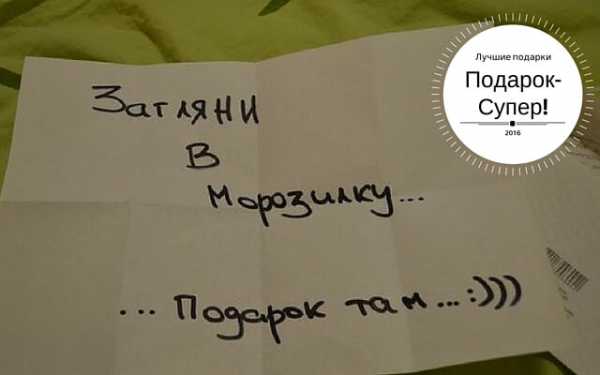 Загляни
в
морозилку...
... Подарок там... :)))
Лучшие подарки
Подарок-
Супер!
2016